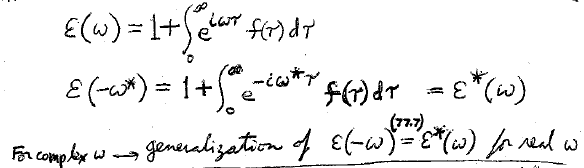 ε(ω) = 1 + ∫₀^∞ e^{iωτ} f(τ) dτ
ε(-ω*) = 1 + ∫₀^∞ e^{-iω*τ} f(τ) dτ = ε*(ω)
For complex ω → generalization of ε(-ω) (77.7) = ε*(ω) for real ω